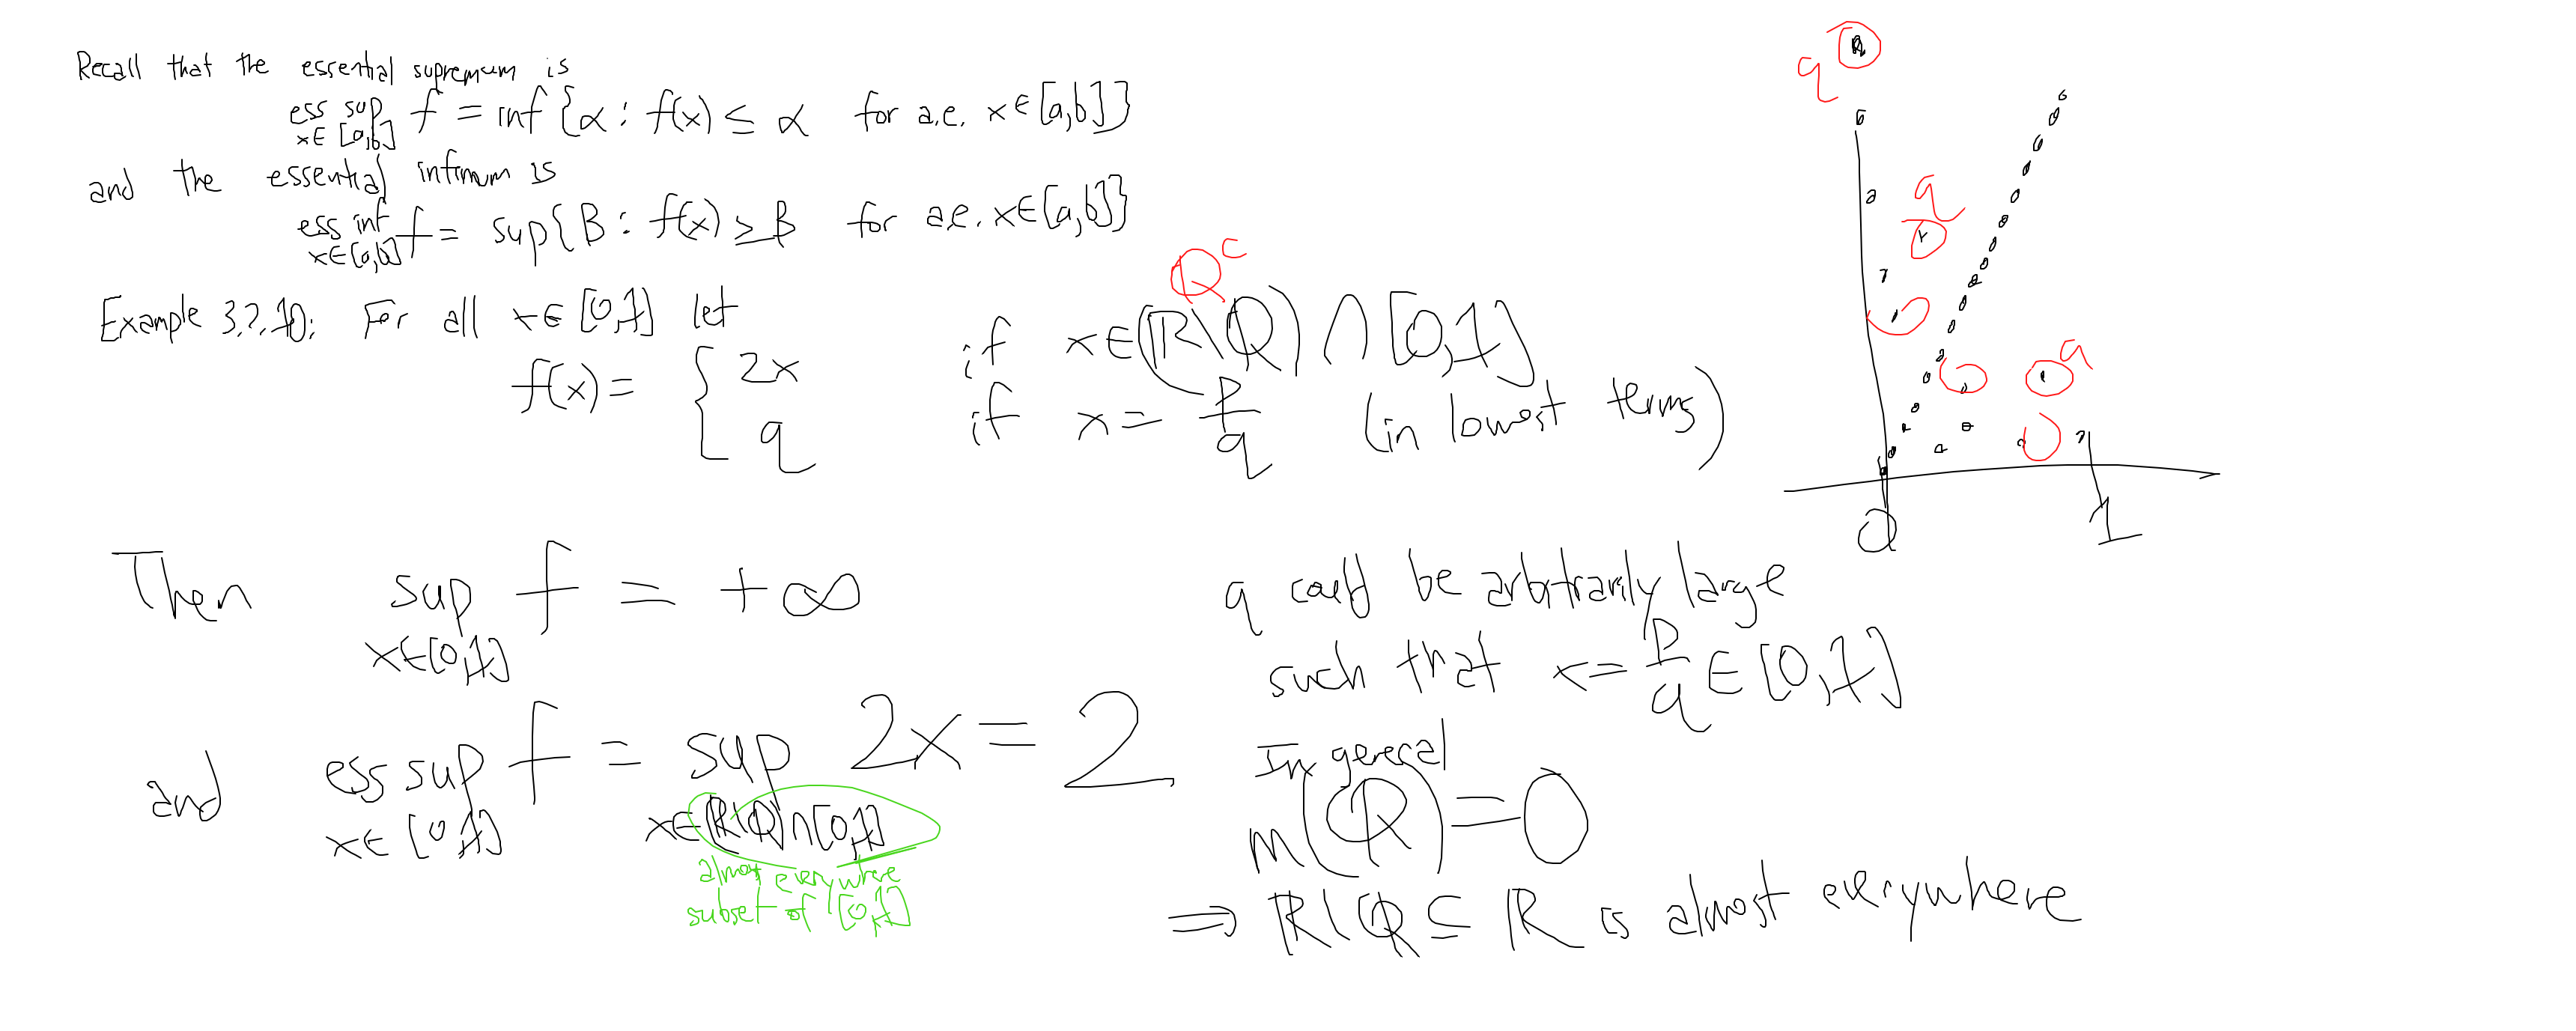 Recall that the essential supremum is
ess sup f = inf {α : f(x) ≤ α for a.e. x∈[a,b]}
x∈[a,b]
and the essential infimum is
ess inf f = sup{B : f(x) ≥ B for a.e. x∈[a,b]}
x∈[a,b]
Example 3.2.10: For all x∈[0,1] let
f(x) = { 2x if x∈(ℝ\ℚ) ∩ [0,1]
ℚᶜ
q if x = p/q (in lowest terms)
q
q
q
0
1
Then sup f = +∞
x∈[0,1]
q could be arbitrarily large
such that x = p/q ∈ [0,1]
and ess sup f = sup 2x = 2
x∈[0,1] x∈(ℝ\ℚ)∩[0,1]
almost everywhere
subset of [0,1]
In general
m(ℚ) = 0
⇒ ℝ\ℚ ⊆ ℝ is almost everywhere